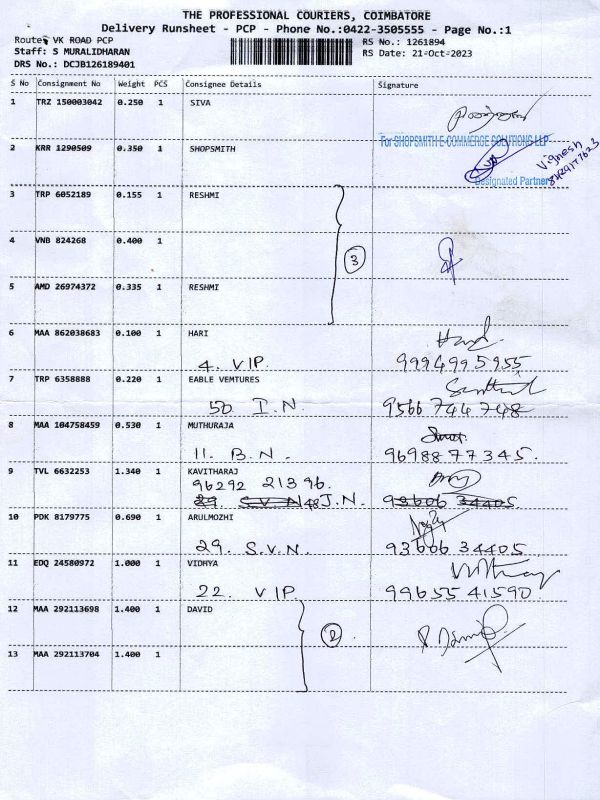 THE PROFESSIONAL COURIERS, COIMBATORE
Delivery Runsheet - PCP - Phone No.:0422-3505555 - Page No.:1
Route: VK ROAD PCP
RS No.: 1261894
Staff: S MURALIDHARAN
RS Date: 21-Oct-2023
DRS No.: DCJB126189401
S No Consignment No Weight PCS Consignee Details Signature
1 TRZ 150003042 0.250 1 SIVA
For SHOPSMITH E-COMMERCE SOLUTIONS LLP
2 KRR 1290509 0.350 1 SHOPSMITH
Vignesh
Designated Partner
3 TRP 6052189 0.155 1 RESHMI
4 VNB 824268 0.400 1
3
5 AMD 26974372 0.335 1 RESHMI
6 MAA 862038683 0.100 1 HARI
4. VIP. 9994995955
7 TRP 6358888 0.220 1 EABLE VEMTURES
50 I.N. 9566 744 748
8 MAA 104758459 0.530 1 MUTHURAJA
11. B.N. 9698877345.
9 TVL 6632253 1.340 1 KAVITHARAJ
96292 21396.
29. S.V.N 48 J.N. 93606 34405.
10 PDK 8179775 0.690 1 ARULMOZHI
29. S.V.N. 93606 34405
11 EDQ 24580972 1.000 1 VIDHYA
22. VIP. 99655 41590
12 MAA 292113698 1.400 1 DAVID
2
13 MAA 292113704 1.400 1